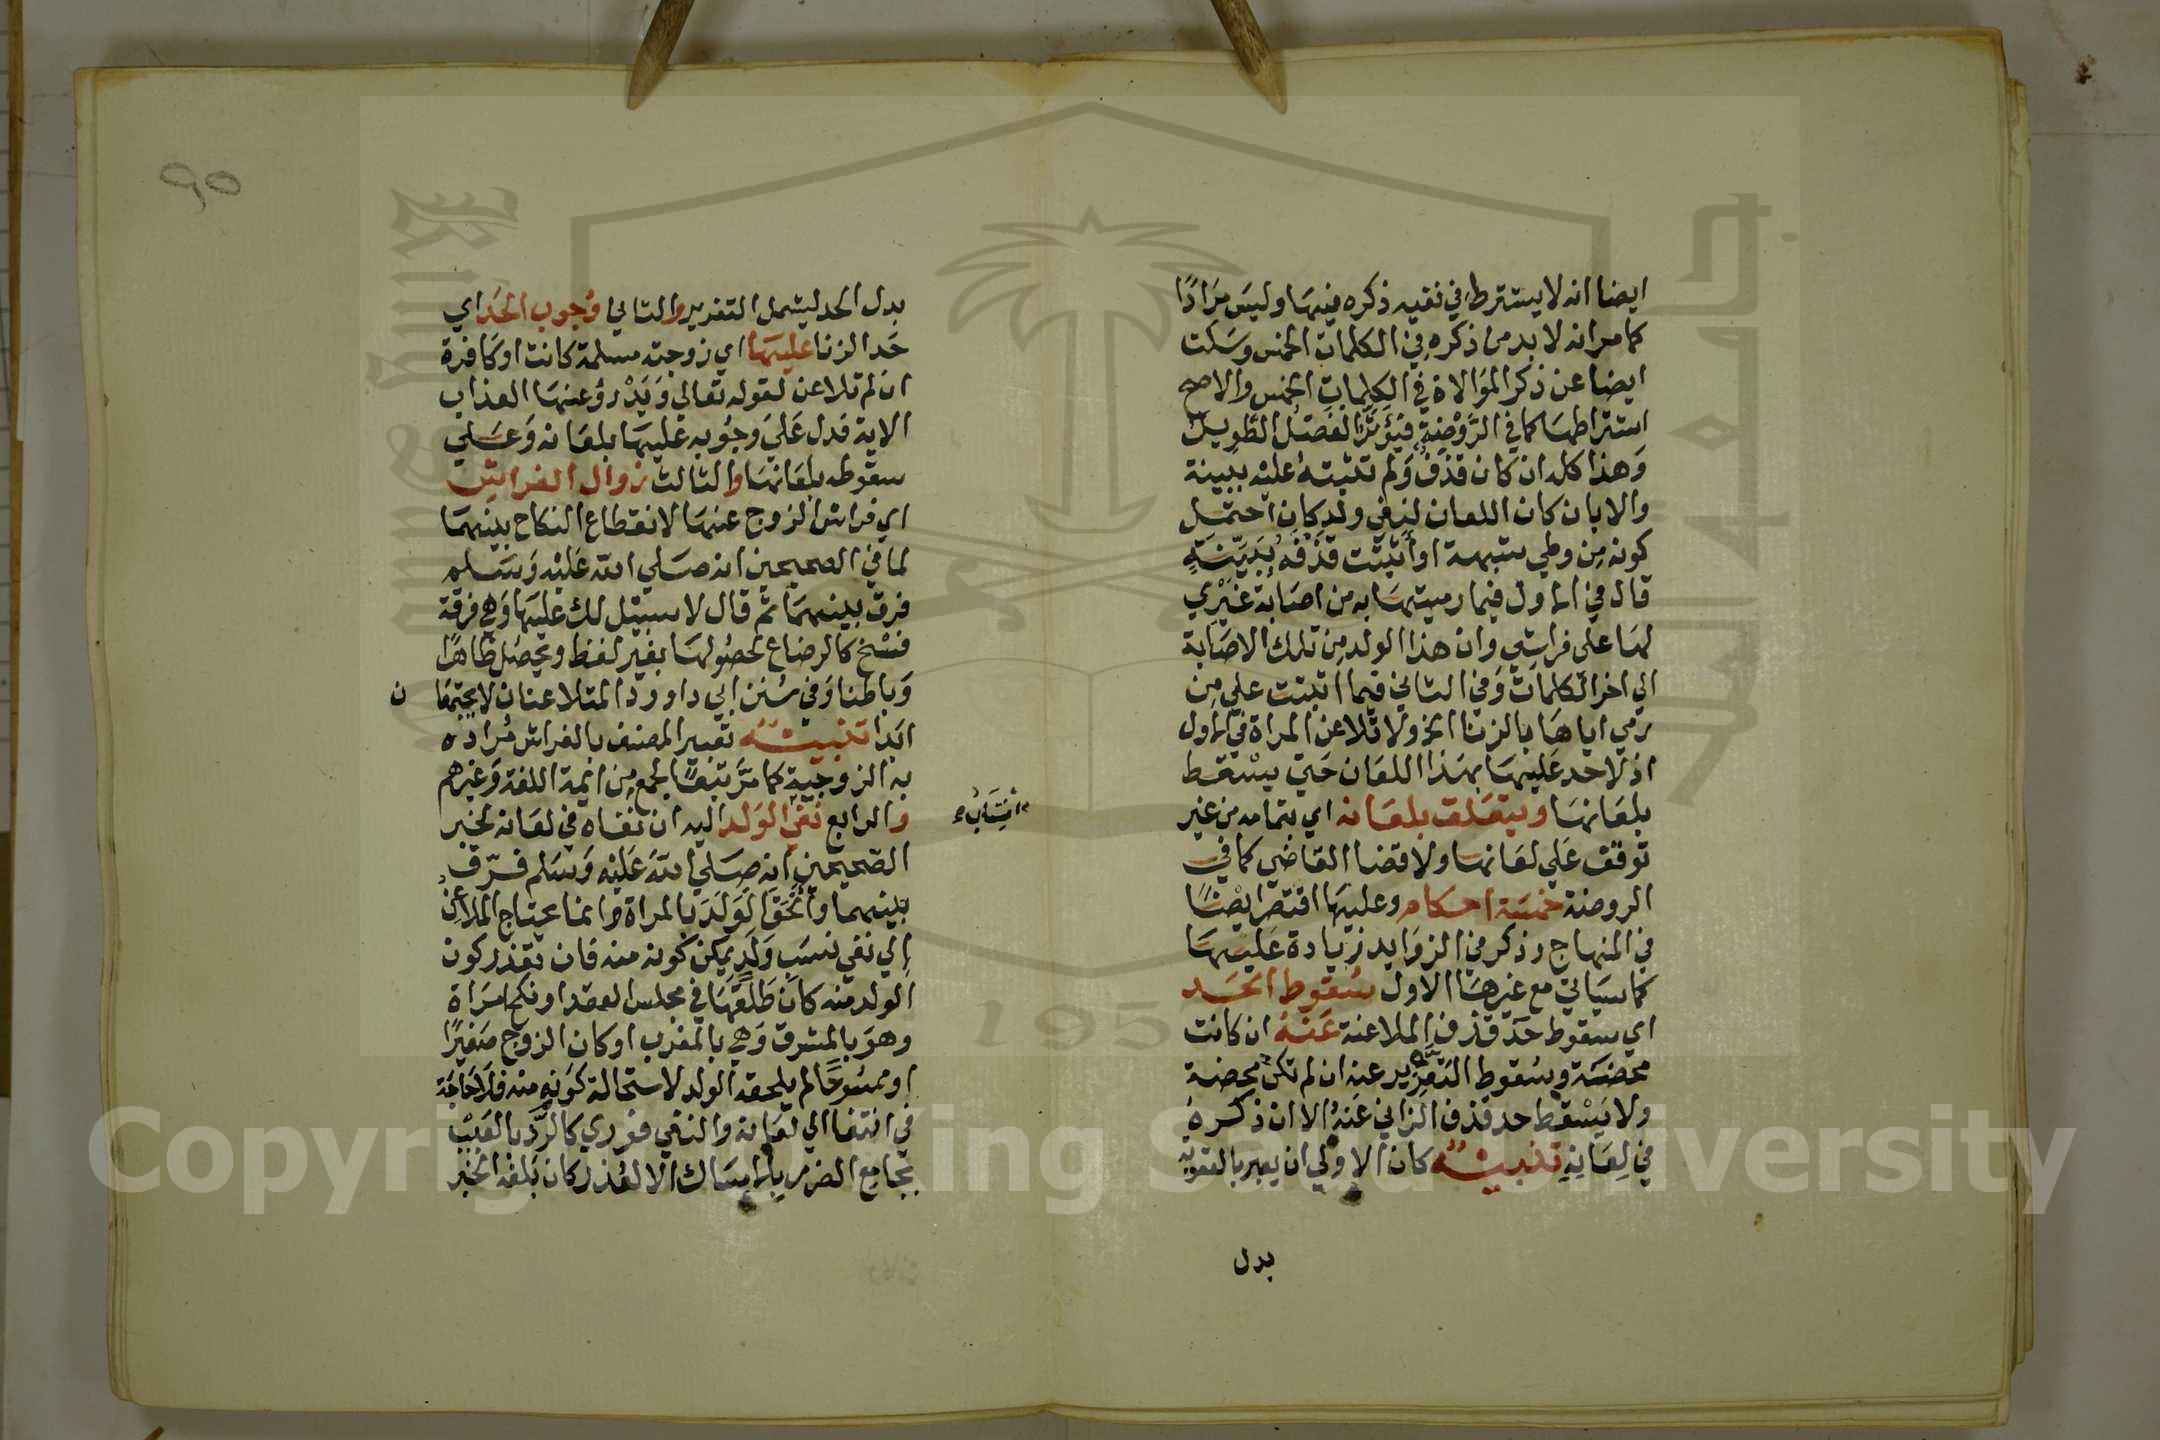 ايضا انه لا يشترط في نفيه ذكره فيها وليس مرادًا
كما مر انه لا بد من ذكره في الكلمات الخمس وسكت
ايضا عن ذكر الموالاة في الكلمات الخمس والاصح
اشتراطها كما في الروضة فيؤثر الفصل الطويل
وهذا كله ان كان قذف ولم تثبته عليه ببينة
والا بان كان اللعان لنفي ولد كان احتمل
كونه من وطي شبهة او اثبتت قذفه ببينة
قال في الاول فيما رميتها به من اصابة غيري
لها على فراشي وان هذا الولد من تلك الاصابة
الي اخر الكلمات وفي الثاني فيما اثبتت علي من
رمي اياها بالزنا الخ ولا تلاعن المراة في الاول
اذ لا حد عليها بهذا اللعان حتي يسقط
بلعانها ويتعلق بلعانه اي بتمامه من غير
توقف علي لعانها ولا قضا القاضي كما في
الروضة خمسة احكام وعليها اقتصر ايضًا
في المنهاج وذكر في الزوايد زيادة عليها
كما سياتي مع غيرها الاول سقوط الحد
اي سقوط حد قذف الملاعنة عنه ان كانت
محصنة وسقوط التعزير عنه ان لم تكن محصنة
ولا يسقط حد قذف الزاني عنه الا ان ذكره
في لعانه تنبيه كان الاولي ان يعبر بالعقوبة
بدل
٩٥
بدل الحد ليشمل التعزير والثاني وجوب الحد اي
حد الزنا عليها اي زوجته مسلمة كانت او كافرة
ان لم تلاعن لقوله تعالي ويدرؤ عنها العذاب
الاية فدل علي وجوبه عليها بلعانه وعلي
سقوطه بلعانها والثالث زوال الفراش
اي فراش الزوج عنها لانقطاع النكاح بينهما
لما في الصحيحين انه صلي الله عليه وسلم
فرق بينهما ثم قال لا سبيل لك عليها وهي فرقة
فسخ كالرضاع لحصولها بغير لفظ ويحصل ظاهرًا
وباطنا وفي سنن ابي داوود المتلاعنان لا يجتمعا
ن
ابدا تنبيه تعبير المصنف بالفراش مراده
به الزوجية كما مر تبعًا لجمع من ايمة اللغة وغيرهم
والرابع نفي الولد اليه ان نفاه في لعانه لخبر
الصحيحين انه صلي الله عليه وسلم فرق
بينهما والحق الولد بالمراة وانما يحتاج الملاعن
الي نفي نسب ولد يمكن كونه منه فان تعذر كون
الولد منه كان طلقها في مجلس العقد او نكح امراة
وهو بالمشرق وهي بالمغرب او كان الزوج صغيرًا
او ممسوحًا لم يلحقه الولد لاستحالة كونه منه فلا حاجة
في انتفا الي لعانه والنفي فوري كالرد بالعيب
بجامع الضرر بالامساك الا لعذر كان بلغه الخبر
Copyright © King Saud University
195